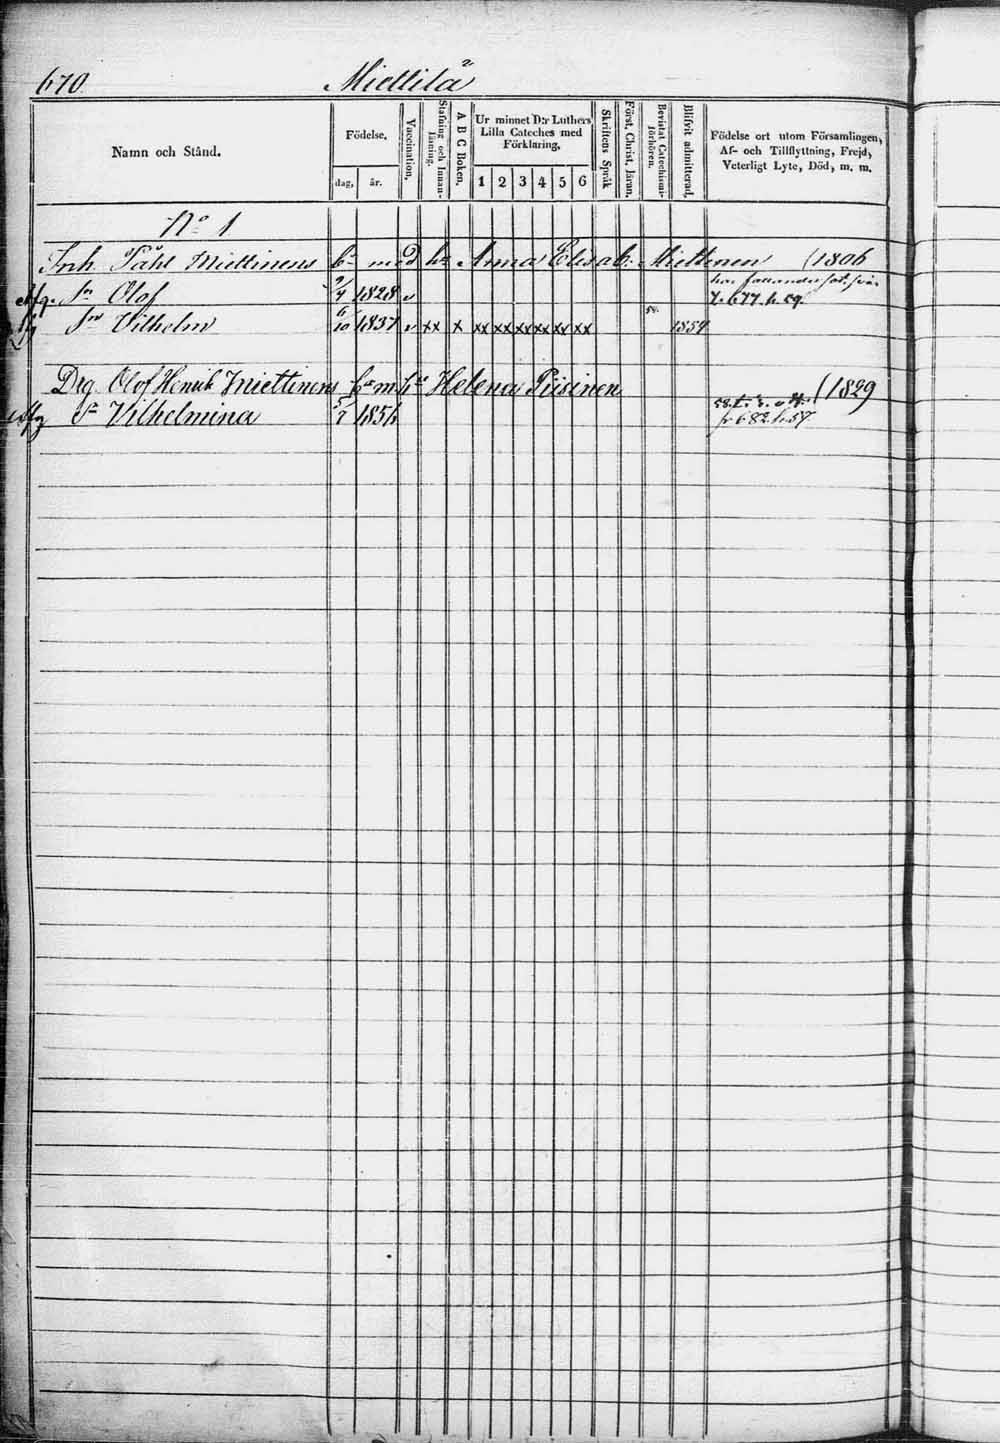 670 Miettilä
Namn och Stånd.
Födelse.
dag, år.
Vaccination.
Stafning och Innanläsning.
A B C Boken.
Ur minnet D:r Luthers Lilla Cateches med Förklaring.
1 2 3 4 5 6
Skriftens Språk
Först. Christ. läran.
Bevistat Catechismiförhören.
Blifvit admitterad.
Födelse ort utom Församlingen, Af- och Tillflyttning, Frejd, Veterligt Lyte, Död, m. m.
No 1
Inh. Påhl Miettinens br med hu Anna Elisab. Miettinen (1806
Sn Olof 2/4 1828 v p. 677. h. 59.
Sn Vilhelm 6/10 1837 v xx x xx xx xx xx xx xx 58. 1857
Drg. Olof Henrik Miettinens br m. hu Helena Piisinen (1829
Dr Vilhelmina 5/7 1856 p 682. h. 57.